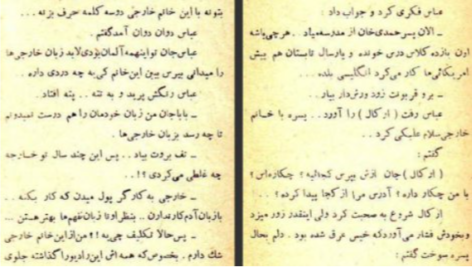 عباس فکری کرد و جواب داد :
ـ الان پسرحمدی‌خان از مدرسه‌میاد . . هرچی‌باشه
اون یازده کلاس درس خونده و پارسال تابستان هم پیش
امریکائی‌ها کار می‌کرد انگلیسی بلده . . .
ـ برو قربونت زود ورش‌دار بیار . .
عباس رفت ( ارکال ) را آورد . . پسره با خانم
خارجی سلام علیکی کرد . .
گفتم :
( ارکال ) جان ازش بپرس کجائیه ؟ چکاره‌اس ؟
با من چکار داره ؟ آدرس مرا از کجا پیدا کرده ؟ . .
ارکال شروع به صحبت کرد ولی اینقدر زور میزد
و بخودش فشار می‌آورد که خیس عرق شده بود . دلم بحال
پسره سوخت گفتم :
بتونه با این خانم خارجی دوسه کلمه حرف بزنه . . .
عباس دوان دوان آمد گفتم .
عباس‌جان تو اینهمه آلمان بودی لابد زبان خارجی‌ها
را میدانی بپرس ببین این خانم کی‌یه چه دردی داره . .
عباس رنگش پرید و به تته . . پته افتاد
ـ باباجان من زبان خودمان را هم درست نمیدونم
تا چه رسد بزبان خارجی‌ها .
ـ تف بروت بیاد . . پس این چند سال تو خارجه
چه غلطی می‌کردی ؟! . .
ـ خارجی به کارگر پول میدن که کار بکنه . .
با زبان آدم کار ندارن . . بنظر او تا زبان نفهم‌ها بهتر هستن . . .
ـ پس حالا تکلیف چی‌یه ؟؟ من از این خانم خارجی
شك دارم . بخصوص که همه‌اش این رادیو را گذاشته جلوی